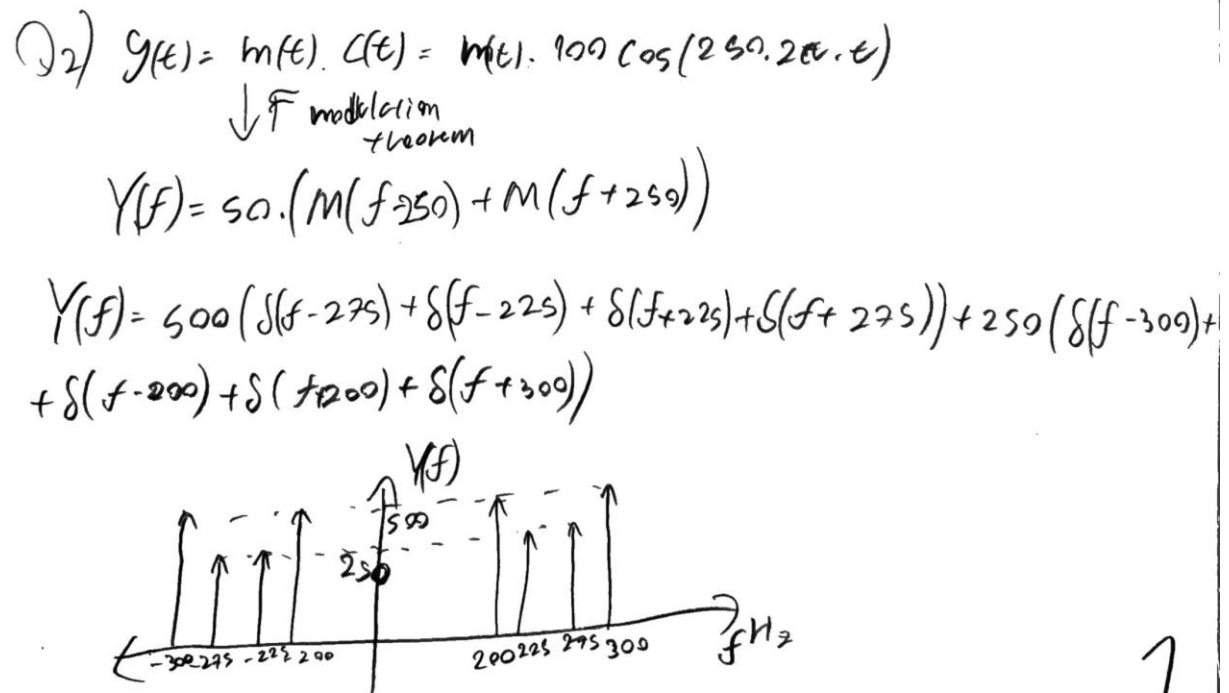 Q2) y(t) = m(t). C(t) = m(t). 100 Cos(250.2π.t)
↓ F modulation
theorem
Y(f) = 50.(M(f-250) + M(f+250))
Y(f) = 500(δ(f-275) + δ(f-225) + δ(f+225) + δ(f+275)) + 250(δ(f-300) +
+ δ(f-200) + δ(f+200) + δ(f+300))
Y(f)
500
250
-300 -275 -225 200 200 225 275 300 f Hz